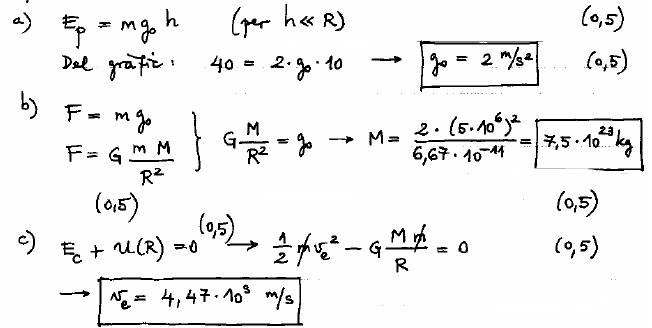 a) Ep = m g₀ h (per h << R) (0,5)
Del gràfic: 40 = 2·g₀·10 → g₀ = 2 m/s² (0,5)
b) F = m g₀
F = G m M / R² } G M/R² = g₀ → M = 2·(5·10⁶)² / 6,67·10⁻¹¹ = 7,5·10²³ kg
(0,5) (0,5)
c) Ec + U(R) = 0 (0,5) → 1/2 m vₑ² − G M m / R = 0 (0,5)
→ vₑ = 4,47·10³ m/s